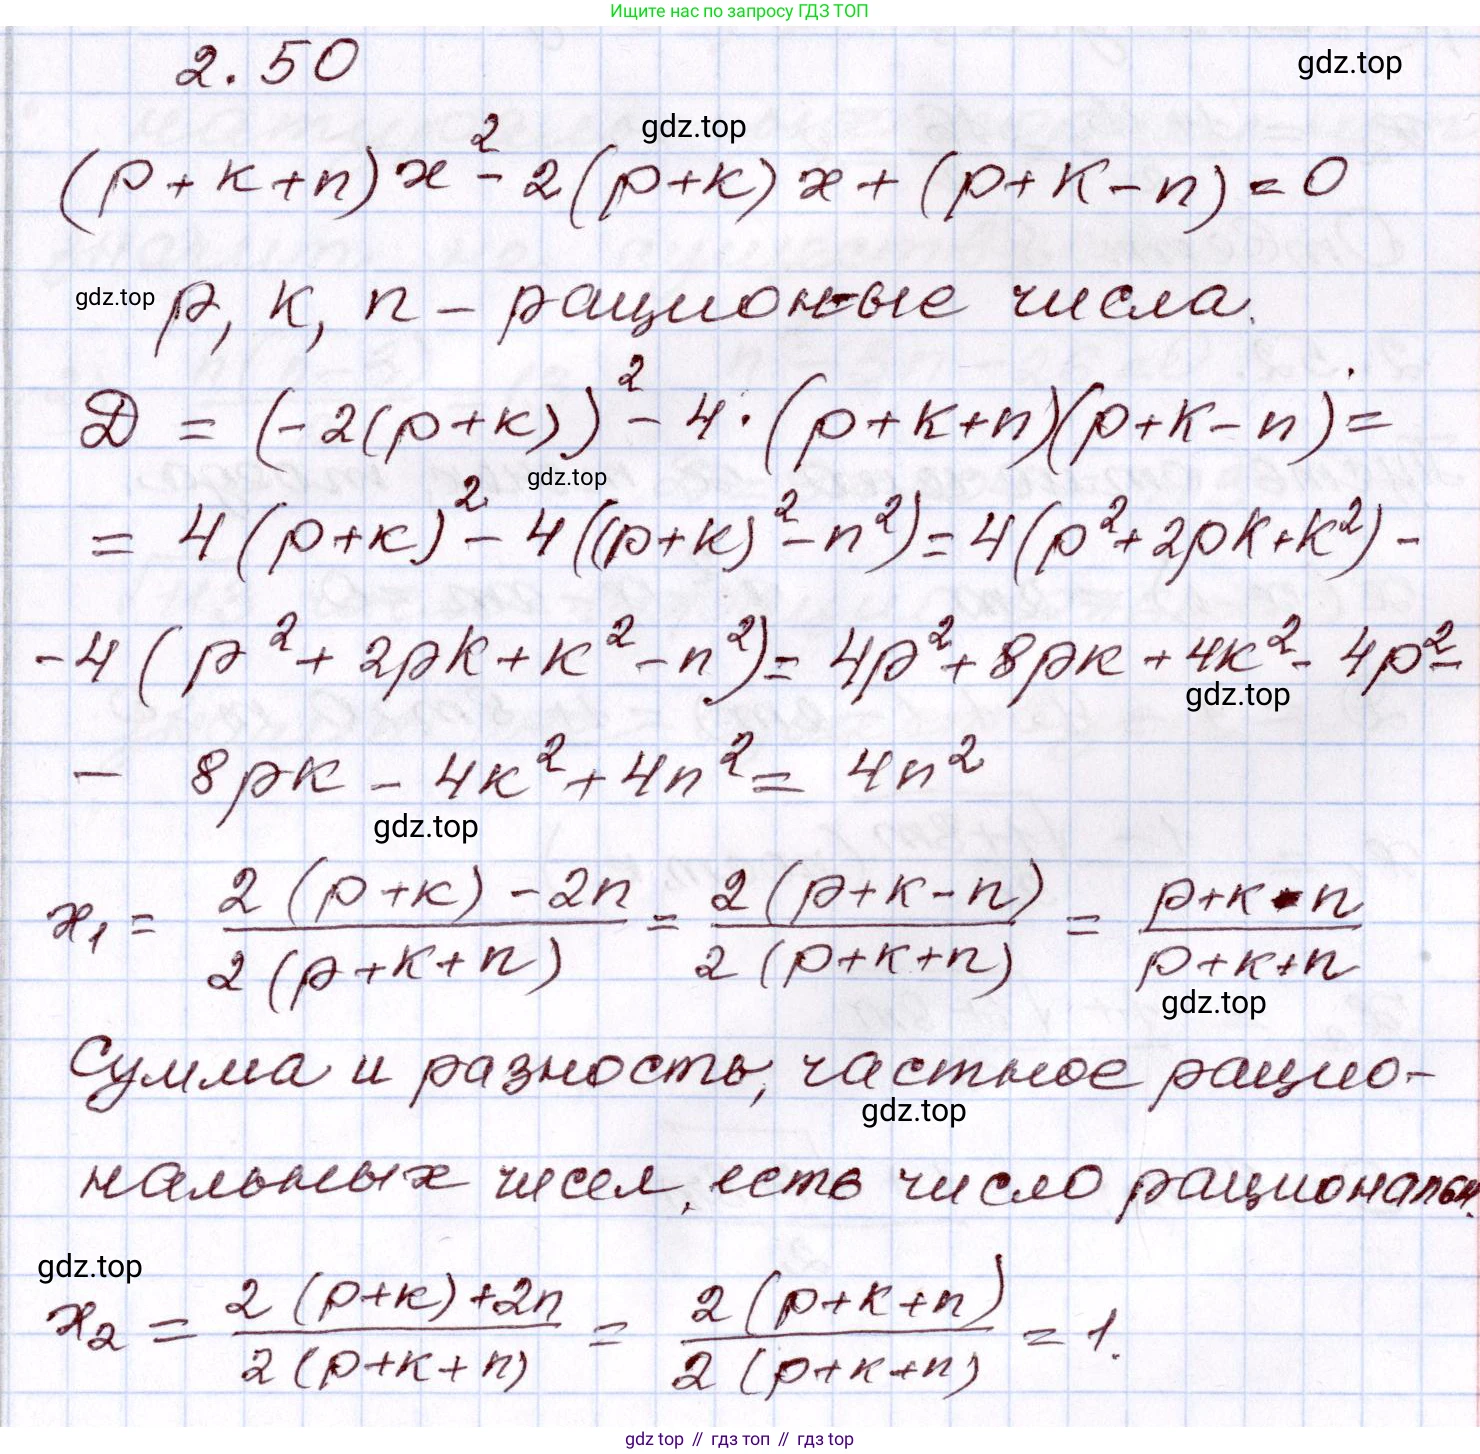 Ищите нас по запросу ГДЗ ТОП
2.50
gdz.top
gdz.top
(p+k+n)x² - 2(p+k)x + (p+k-n) = 0
gdz.top
p, k, n – рационые числа.
D = (-2(p+k))² - 4·(p+k+n)(p+k-n) =
gdz.top
= 4(p+k)² - 4((p+k)² - n²) = 4(p² + 2pk + k²) -
- 4(p² + 2pk + k² - n²) = 4p² + 8pk + 4k² - 4p² -
gdz.top
- 8pk - 4k² + 4n² = 4n²
gdz.top
x₁ = (2(p+k) - 2n)/(2(p+k+n)) = (2(p+k-n))/(2(p+k+n)) = (p+k-n)/(p+k+n)
gdz.top
Сумма и разность, частное рацио-
gdz.top
нальных чисел, есть число рациональн.
gdz.top
x₂ = (2(p+k) + 2n)/(2(p+k+n)) = (2(p+k+n))/(2(p+k+n)) = 1.
gdz top // гдз топ // гдз top